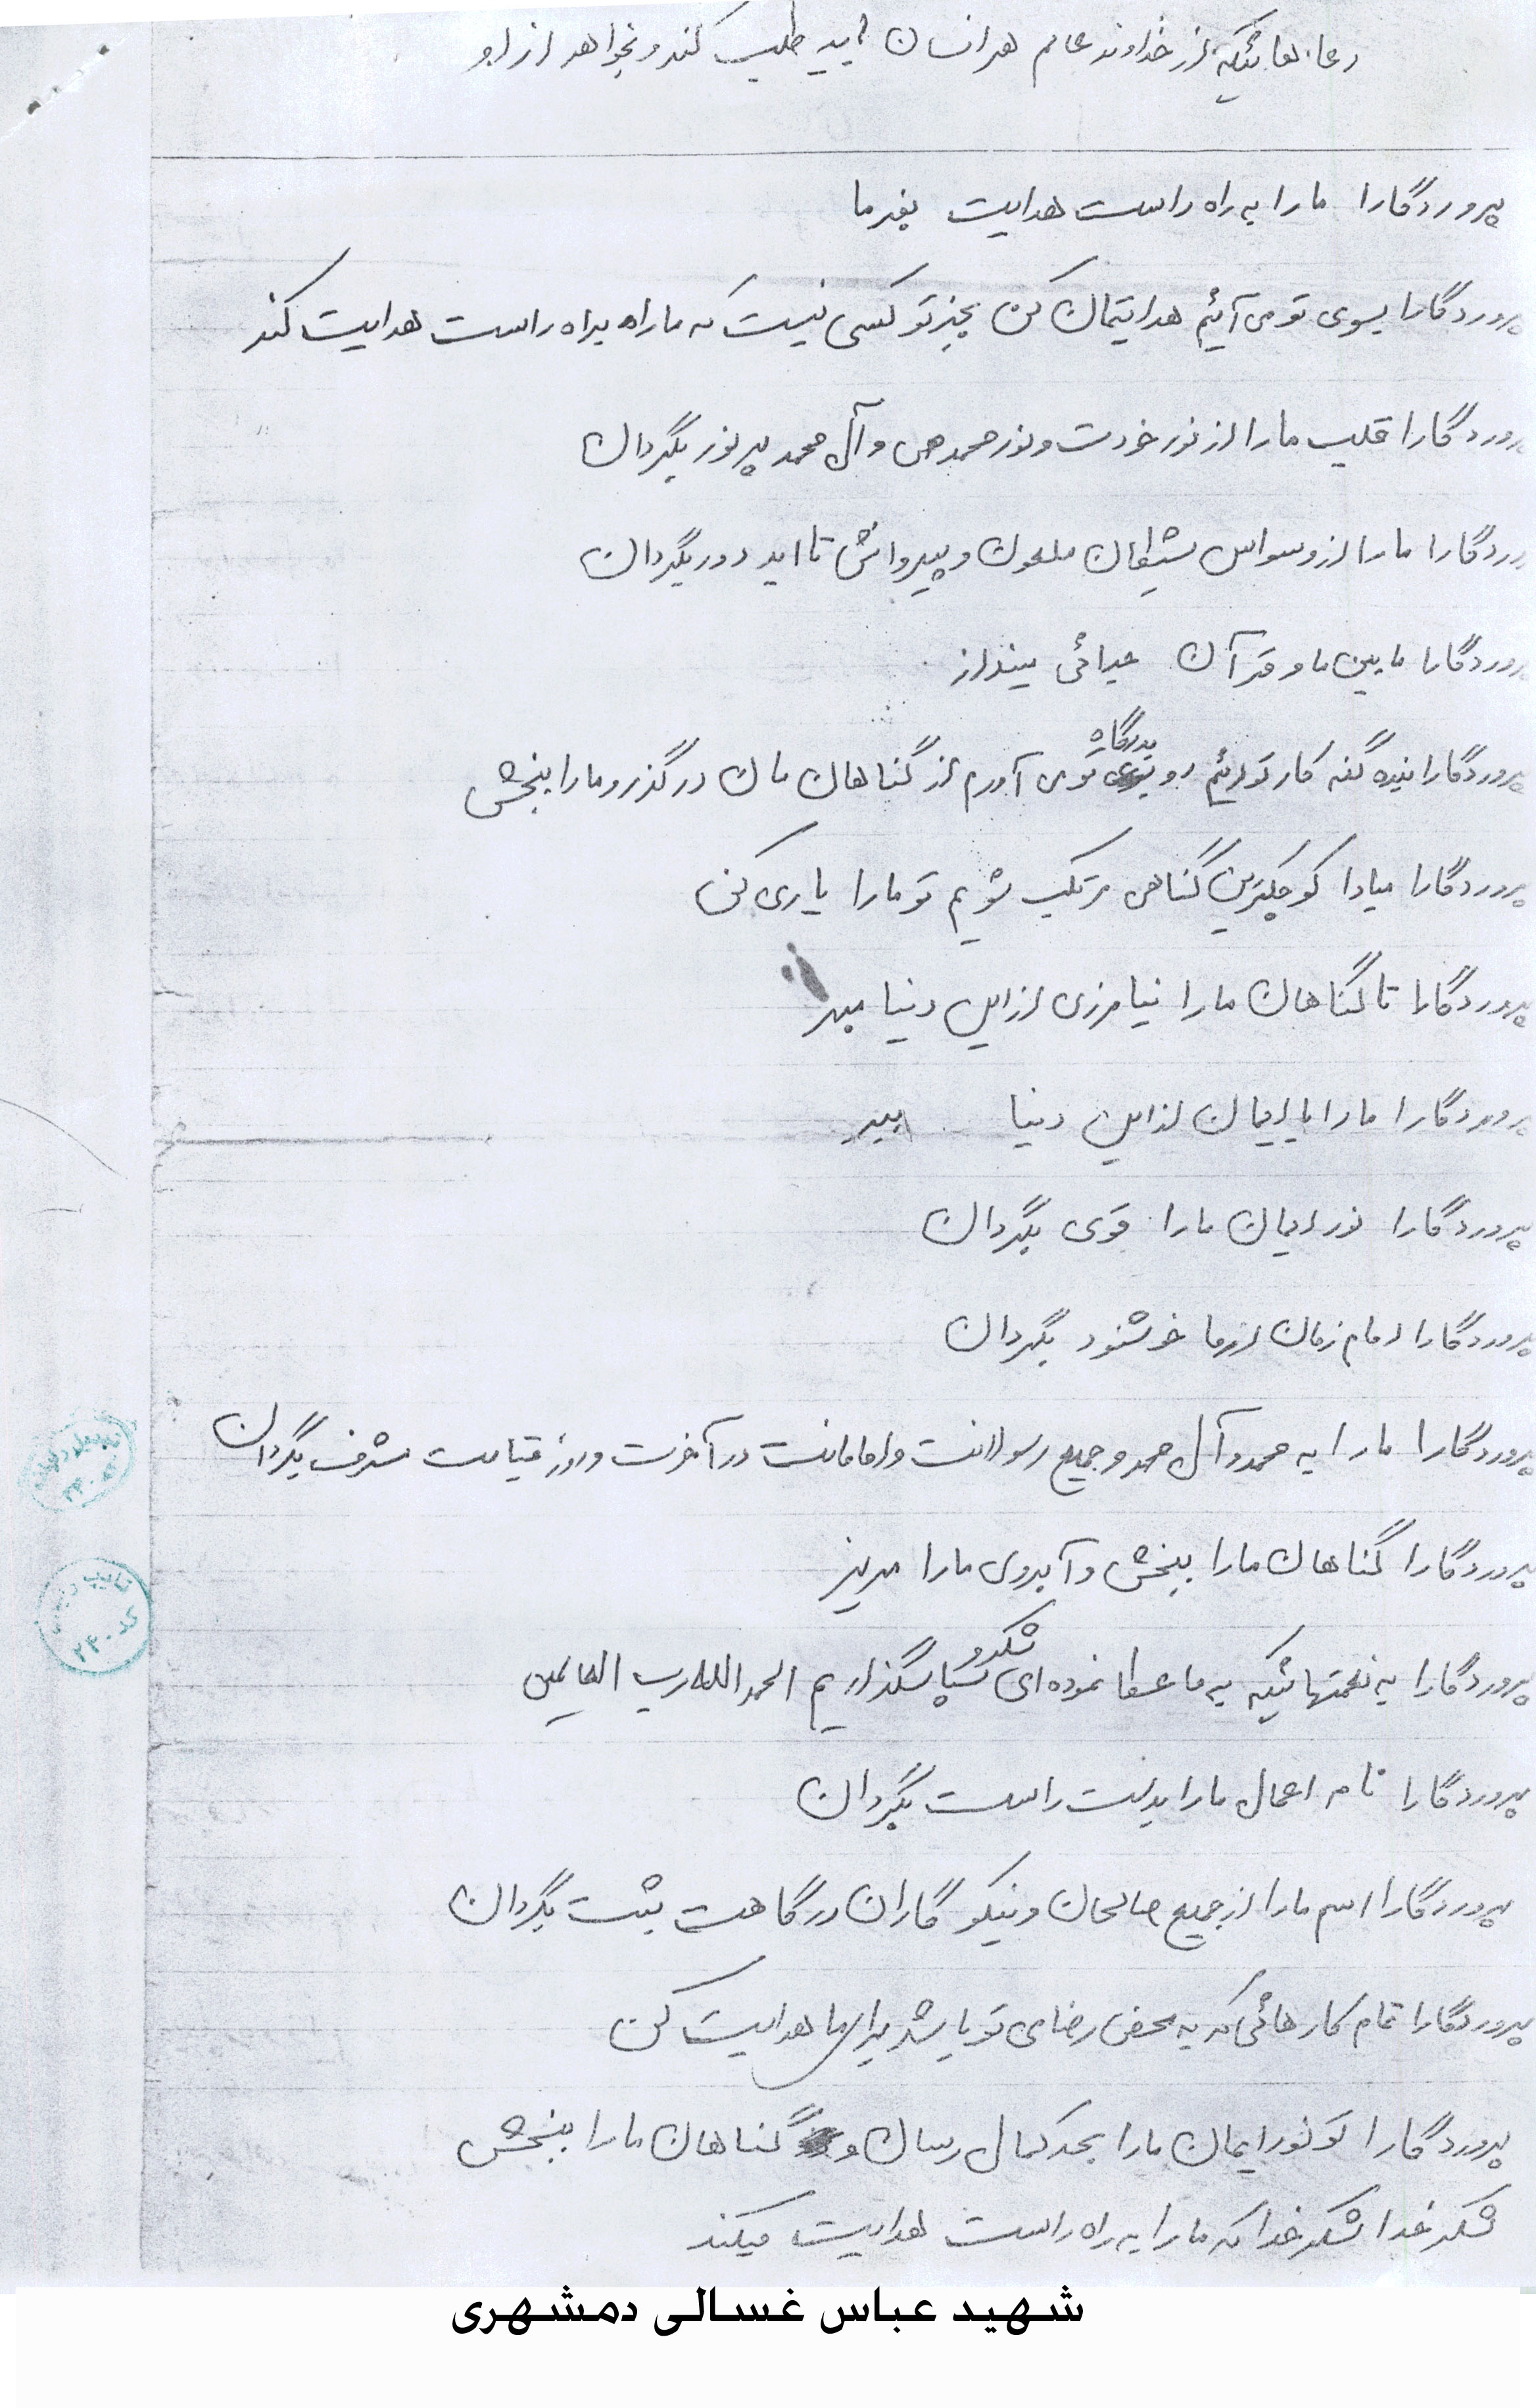 دعاهائیکه از خداوند عالم هر انسان باید طلب کند و بخواهد از او
پروردگارا ما را به راه راست هدایت بفرما
پروردگارا بسوی تو می آئیم هدایتمان کن بجز تو کسی نیست که ما راه براه راست هدایت کند
پروردگارا قلب ما را از نور خودت و نور محمد ص و آل محمد پر نور بگردان
پروردگارا ما را از وسواس شیطان ملعون و پیروانش تا ابد دور بگردان
پروردگارا مابین ما و قرآن جدائی مینداز
پروردگارا بنده گنه کار توایم رو بدرگاه تو می آورم از گناهان مان درگذر و ما را ببخش
پروردگارا مبادا کوچکترین گناهی مرتکب شویم تو ما را یاری کن
پروردگارا تا گناهان ما را نیامرزی از این دنیا مبر
پروردگارا ما را با ایمان از این دنیا ببر
پروردگارا نور ایمان ما را قوی بگردان
پروردگارا امام زمان از ما خوشنود بگردان
پروردگارا ما را به محمد و آل محمد و جمیع رسولانت و امامانت در آخرت و روز قیامت مشرف بگردان
پروردگارا گناهان ما را ببخش و آبروی ما را مریز
پروردگارا به نعمتهائیکه به ما عطا نموده ای شکر و سپاسگذاریم الحمد الله رب العالمین
پروردگارا نامه اعمال ما را بدست راست بگردان
پروردگارا اسم ما را از جمیع صالحان و نیکو گاران درگاهت بثت بگردان
پروردگارا تمام کارهائی که به محض رضای تو باشد برای ما هدایت کن
پروردگارا تو نور ایمان ما را بحد کمال رسان و گناهان ما را ببخش
شکر خدا شکر خدا که ما را به راه راست هدایت میکند
شهید عباس غسالی دمشهری